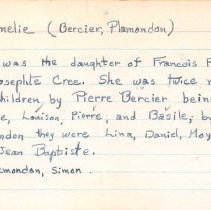 melie (Bercier, Plamondon)
was the daughter of Francois P
osephte Cree. She was twice m
children by Pierre Bercier bein
e, Louison, Pierre, and Basile; by
ndon they were Lina, Daniel, Moy
Jean Baptiste.
amondon, Simon.